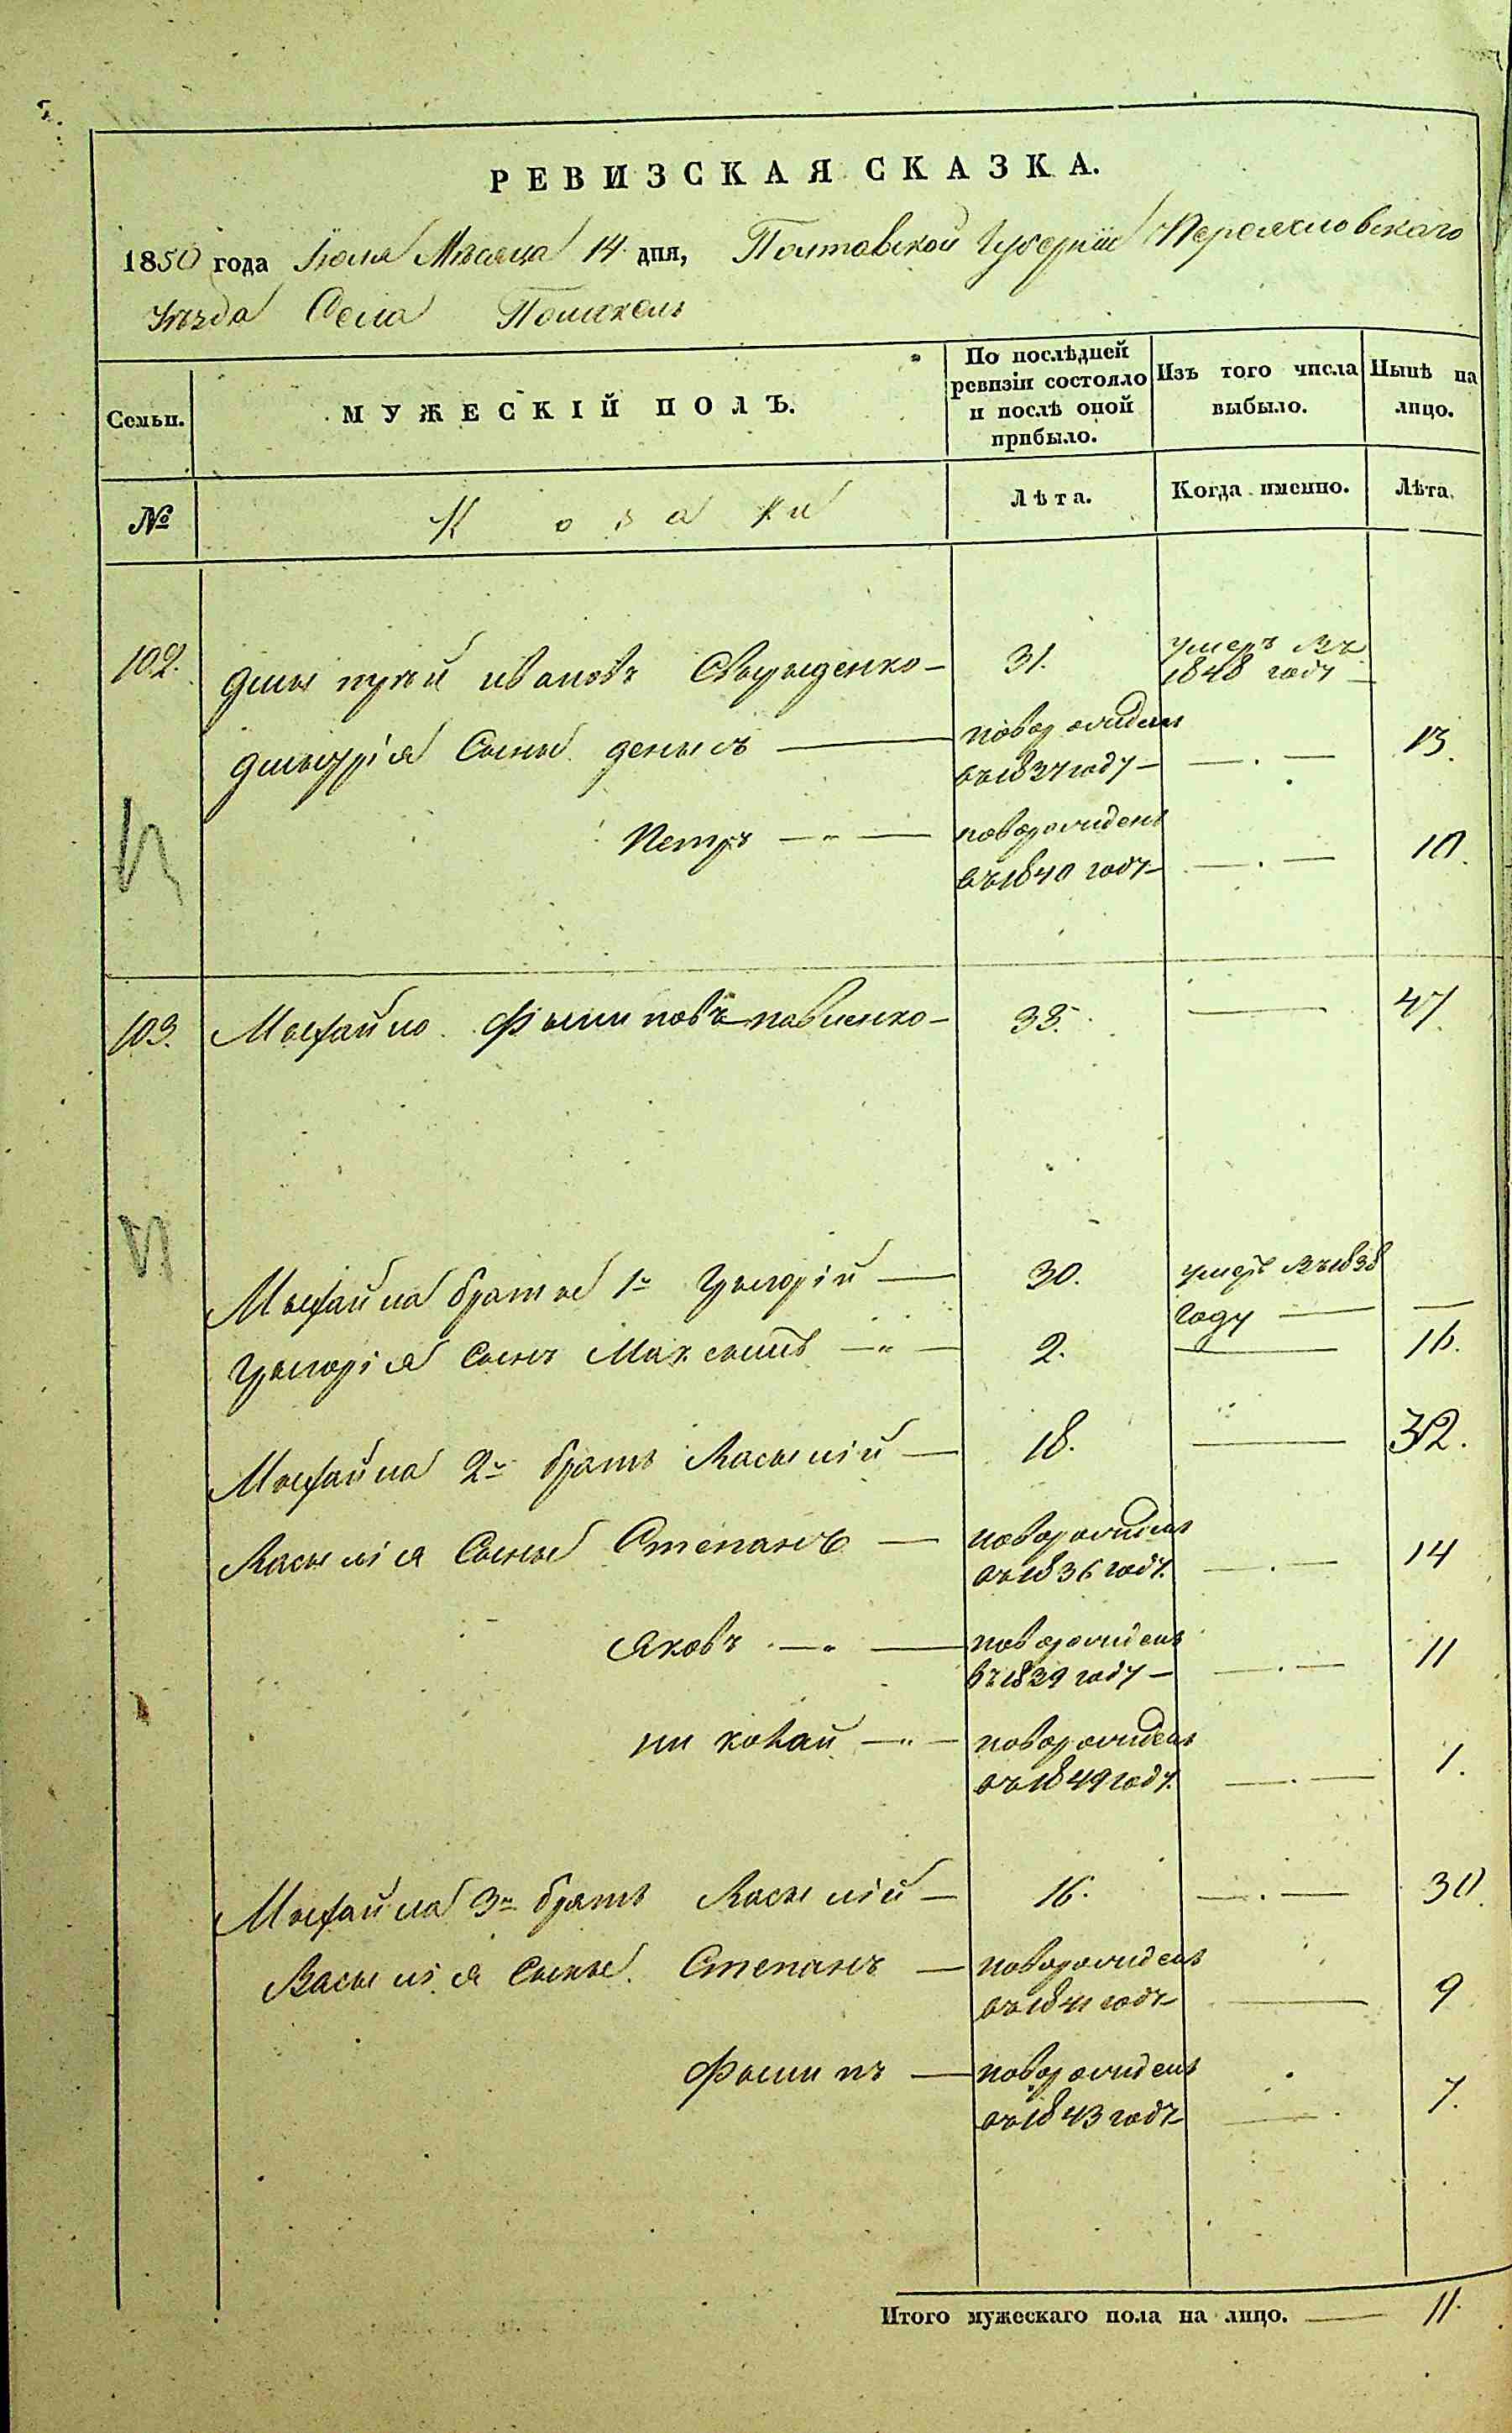 РЕВИЗСКАЯ СКАЗКА.
1850 года Іюля Мѣсяца 14 дня, Полтавской Губерніи Переясловскаго
Уѣзда Села Помокель
Семьи. МУЖЕСКІЙ ПОЛЪ. По послѣдней ревизіи состояло и послѣ оной прибыло. Изъ того числа выбыло. Нынѣ на лицо.
№ Козаки Лѣта. Когда именно. Лѣта.
102. Дмытрый ивановъ 31. умеръ въ 1848 году
Дмытрія Сыны денысъ новорожденъ въ 1837 году 13.
Петръ новорожденъ въ 1840 году 10.
103. Мыхайло Фылиповъ павленко 33. 47.
Мыхайла братья 1й Грыгорій 30. умеръ въ 1838 году
Грыгорія сынъ Максымъ 2. 16.
Мыхайла 2й братъ Васылій 18. 32.
Васылія Сыны Степанъ новорожденъ въ 1836 году. 14
Яковъ новорожденъ въ 1839 году 11
николай новорожденъ въ 1849 году. 1.
Мыхайла 3й братъ Васылій 16. 30.
Васылія Сыны Степанъ новорожденъ въ 1841 году 9
Фылипъ новорожденъ въ 1843 году 7.
Итого мужескаго пола на лицо. 11.